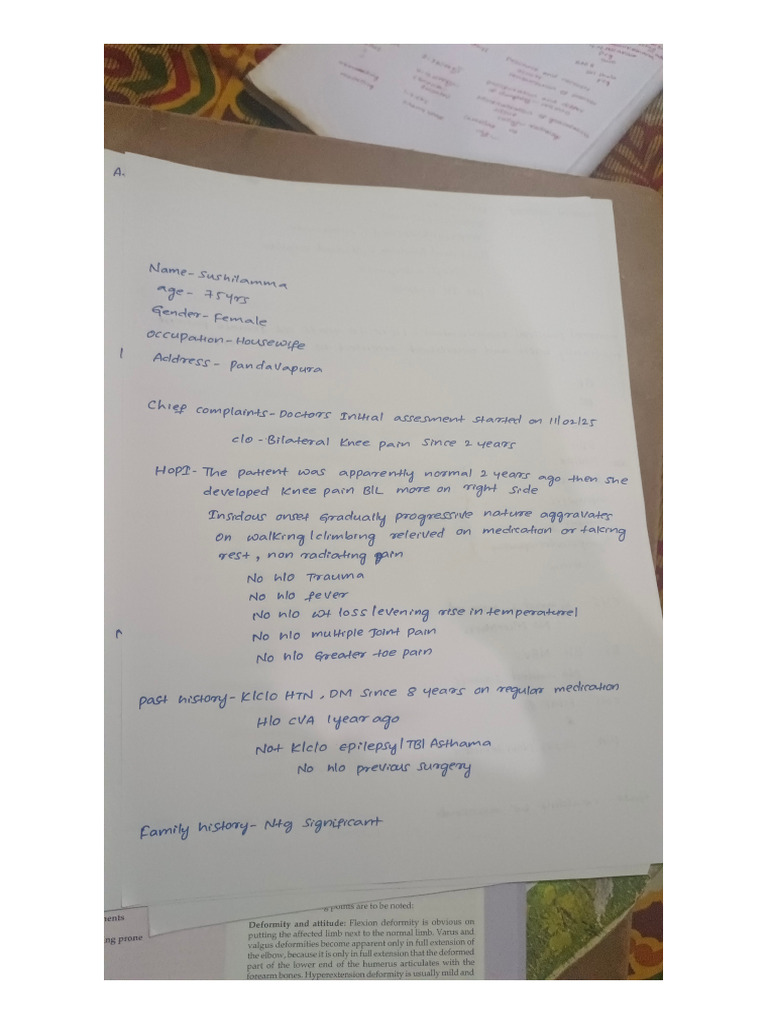 A.
Name- Sushilamma
age- 75yrs
Gender- Female
Occupation- Housewife
Address- Pandavapura
Chief complaints- Doctors Initial assesment started on 11/02/25
c/o - Bilateral Knee pain since 2 years
HOPI- The patient was apparently normal 2 years ago then she
developed Knee pain B/L more on right side
Insidous onset Gradually progressive nature aggravates
on walking/climbing releived on medication or taking
rest, non radiating pain
No h/o Trauma
No h/o fever
No h/o wt loss/evening rise in temperature/
No h/o multiple Joint Pain
No h/o Greater toe pain
Past history- K/c/o HTN, DM since 8 years on regular medication
H/o CVA 1year ago
Not K/c/o epilepsy/TB/Asthama
No h/o previous surgery
Family history- Ntg significant
points are to be noted:
Deformity and attitude: Flexion deformity is obvious on
putting the affected limb next to the normal limb. Varus and
valgus deformities become apparent only in full extension of
the elbow, because it is only in full extension that the deformed
part of the lower end of the humerus articulates with the
forearm bones. Hyperextension deformity is usually mild and
ments
ng prone